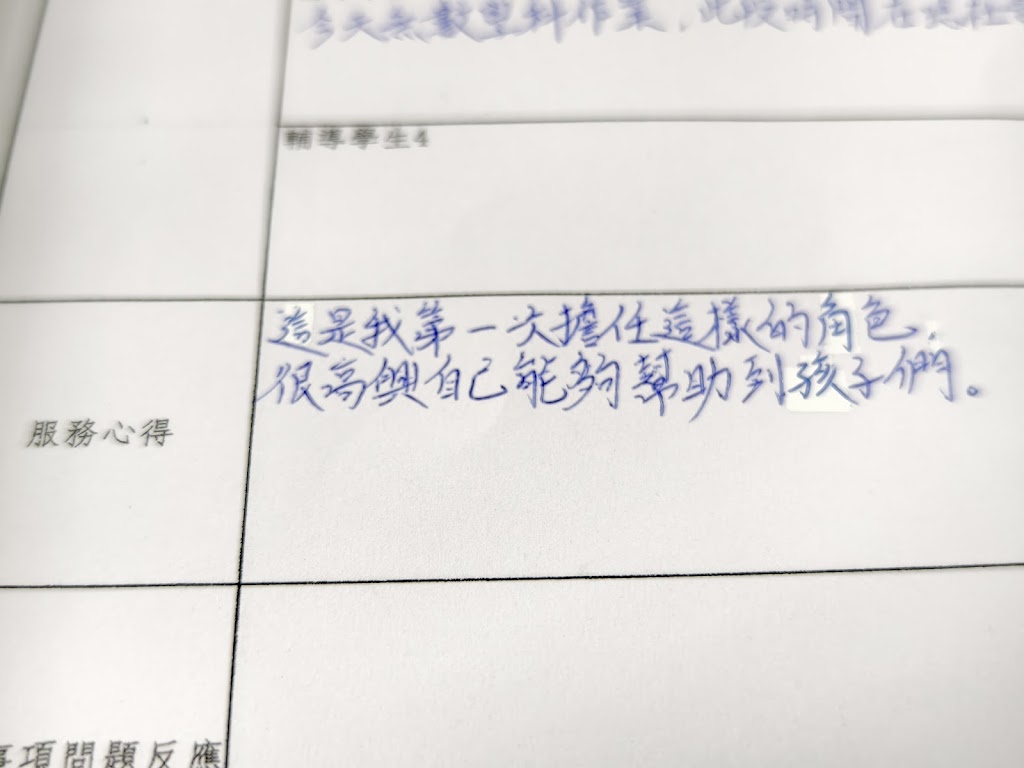 今天無數學科作業，此段時間在
輔導學生4
這是我第一次擔任這樣的角色，
很高興自己能夠幫助到孩子們。
服務心得
事項問題反應